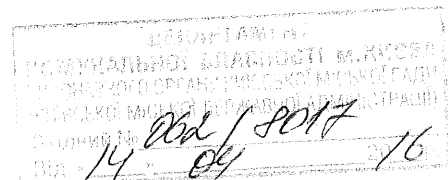 ДЕПАРТАМЕНТ
КОМУНАЛЬНОЇ ВЛАСНОСТІ М.КИЄВА
ВИКОНАВЧОГО ОРГАНУ КИЇВСЬКОЇ МІСЬКОЇ РАДИ
КИЇВСЬКОЇ МІСЬКОЇ ДЕРЖАВНОЇ АДМІНІСТРАЦІЇ
062/8017
14 04 2016